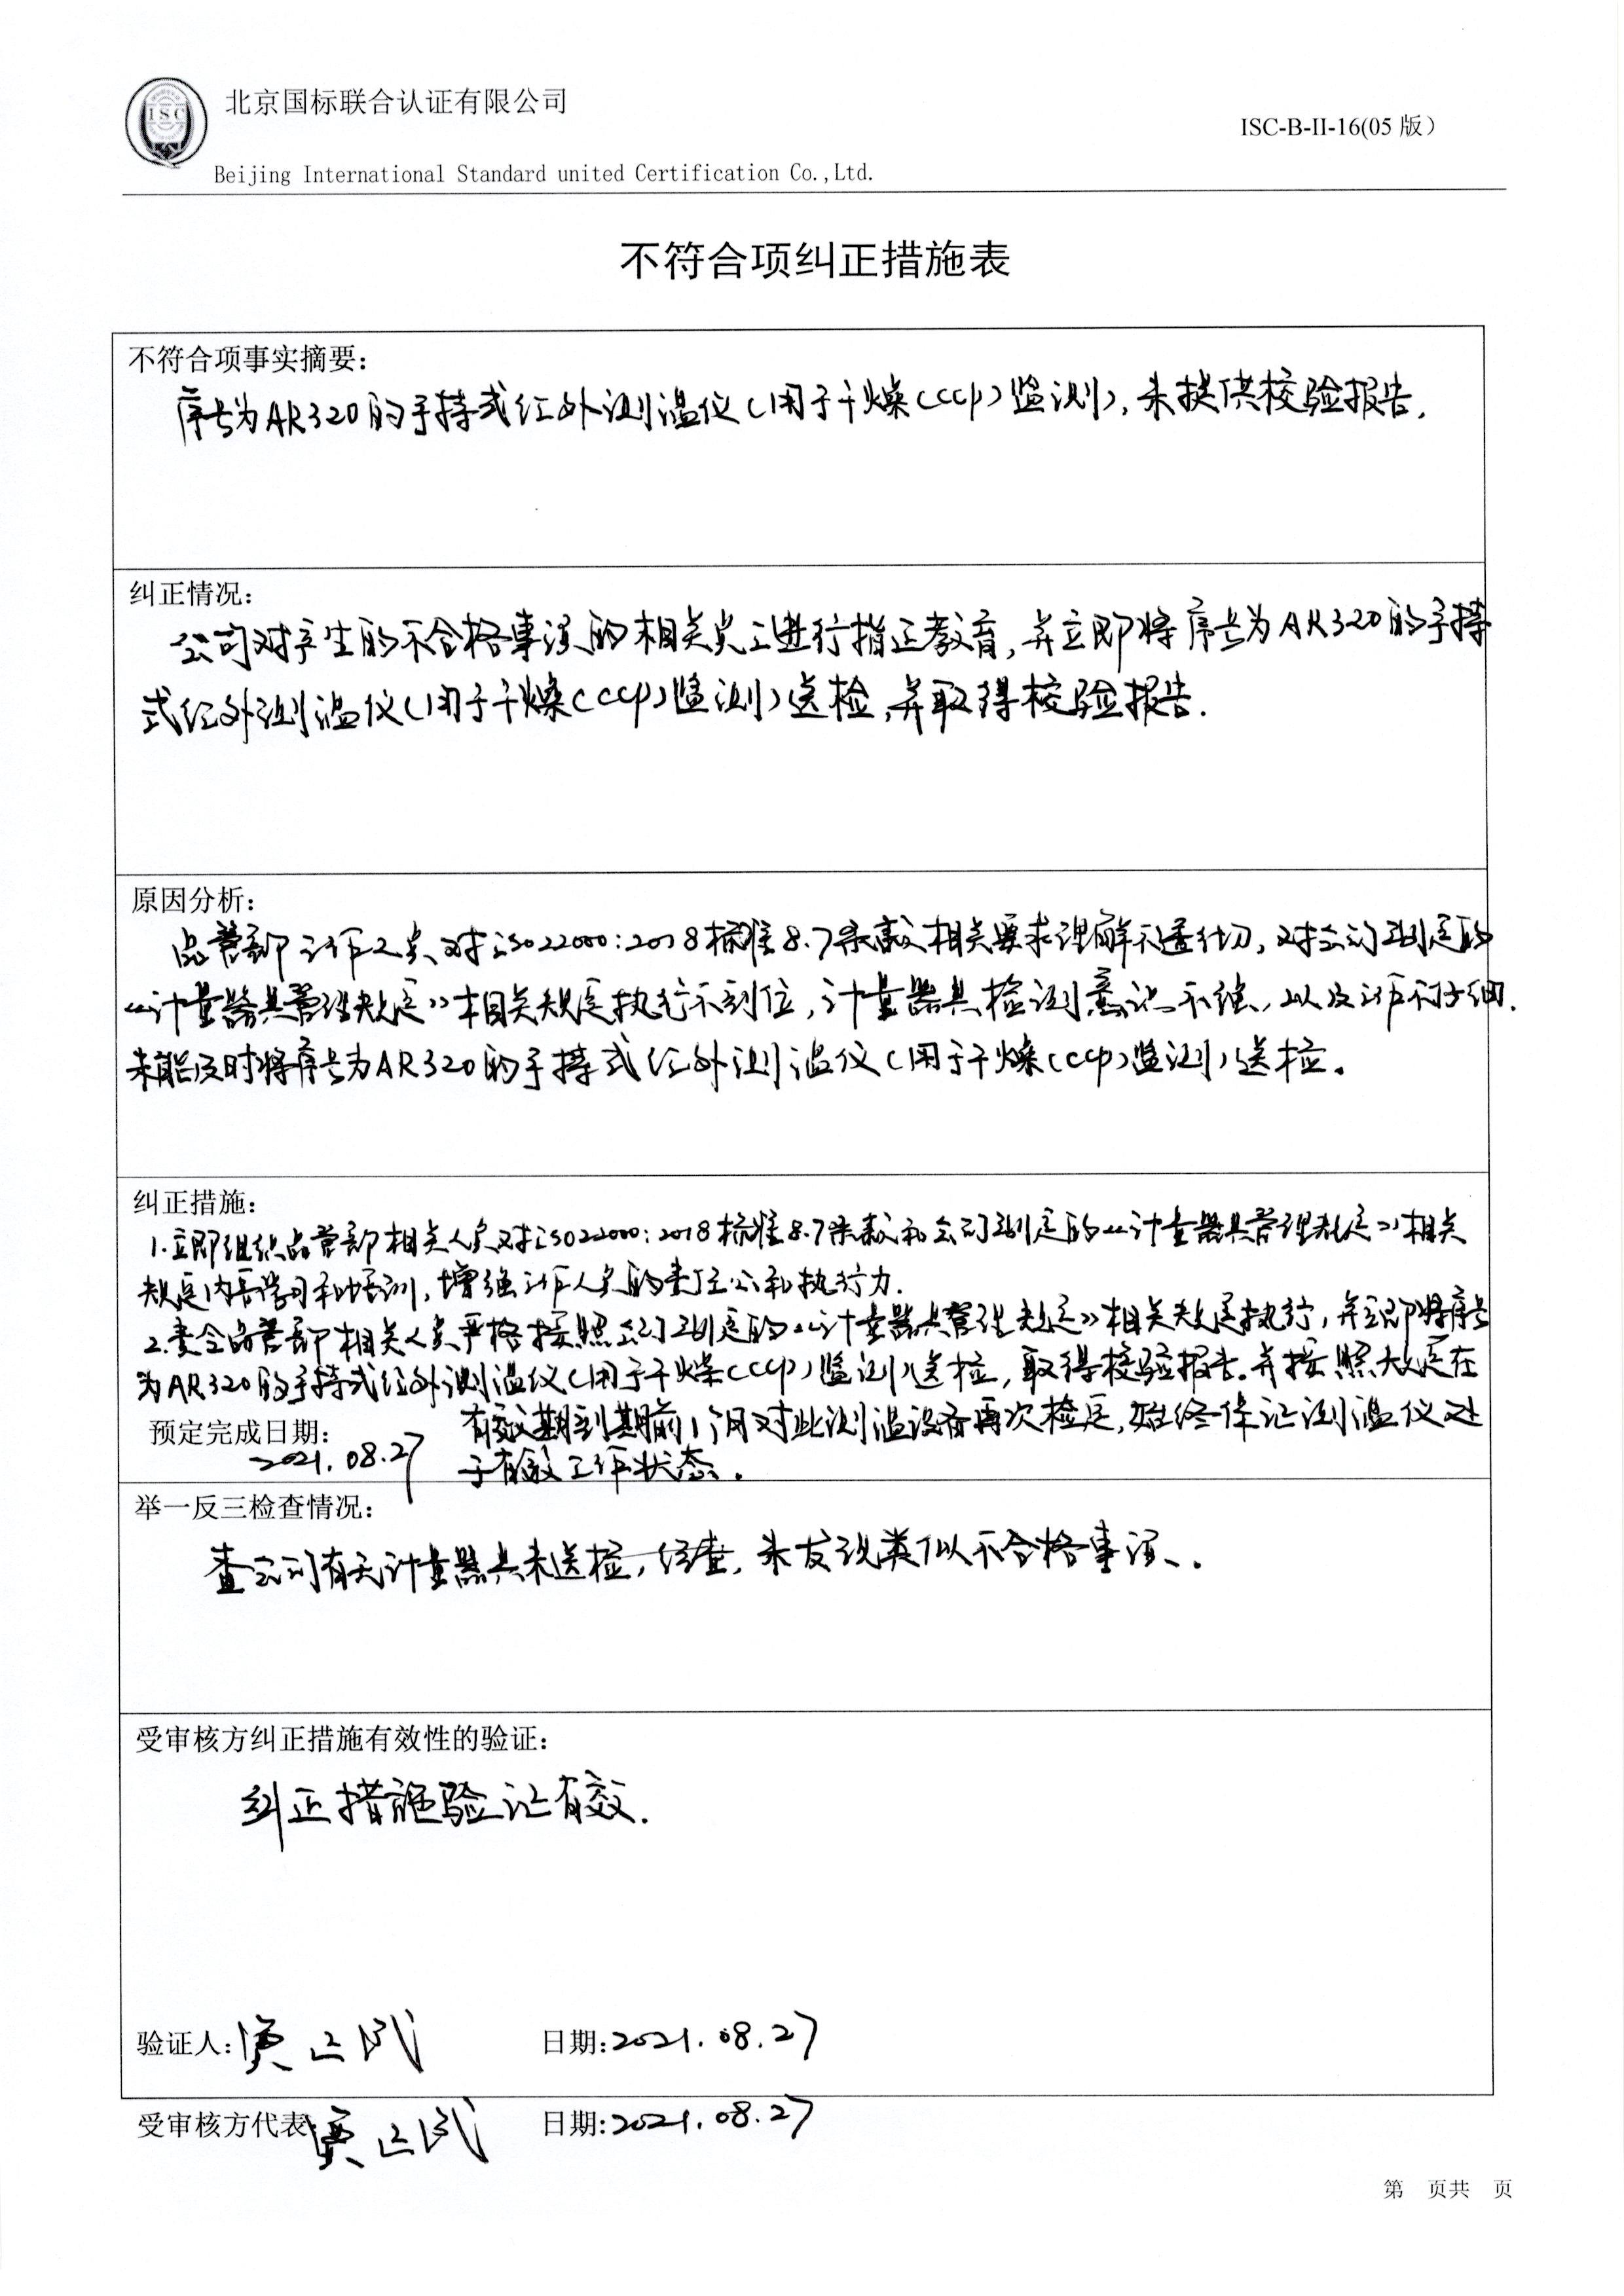 ISC
北京国标联合认证有限公司
ISC-B-II-16(05 版)
Beijing International Standard united Certification Co.,Ltd.
不符合项纠正措施表
不符合项事实摘要:
序号为AR320的手持式红外测温仪(用于干燥(CCP)监测),未提供校验报告.
纠正情况:
公司对产生的不合格事项的相关员工进行指正教育,并立即将序号为AR320的手持
式红外测温仪(用于干燥(CCP)监测)送检,并取得校验报告.
原因分析:
品管部工作人员对ISO22000:2018标准8.7条款相关要求理解不透彻,对公司制定的
《计量器具管理规定》相关规定执行不到位,计量器具检测意识不强,以及工作不仔细.
未能及时将序号为AR320的手持式红外测温仪(用于干燥(CCP)监测)送检。
纠正措施:
1.立即组织品管部相关人员对ISO22000:2018标准8.7条款和公司制定的《计量器具管理规定》相关
规定内容学习和培训,增强工作人员的责任心和执行力.
2.责令品管部相关人员严格按照公司制定的《计量器具管理规定》相关规定执行,并立即将序号
为AR320的手持式红外测温仪(用于干燥(CCP)监测)送检,取得校验报告.并按照规定在
预定完成日期: 有效期到期前1个月对此测温设备再次检定,始终保证测温仪处
2021.08.27 于有效工作状态.
举一反三检查情况:
查公司有无计量器具未送检,经查,未发现类似不合格事项.
受审核方纠正措施有效性的验证:
纠正措施验证有效.
验证人: 日期:2021.08.27
受审核方代表: 日期:2021.08.27
第 页共 页